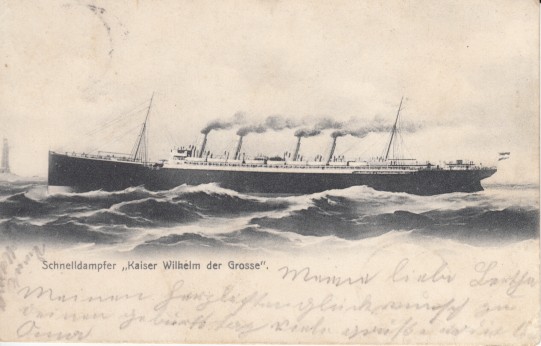 Schnelldampfer „Kaiser Wilhelm der Grosse".
Meine liebe Bertha
Meinen herzlichsten glückwunsch zu
deinen geburtstag viele grüße